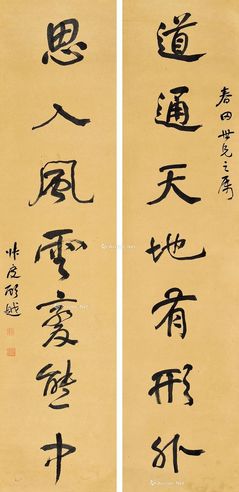 春田世兄之屬
道通天地有形外
思入風雲變態中